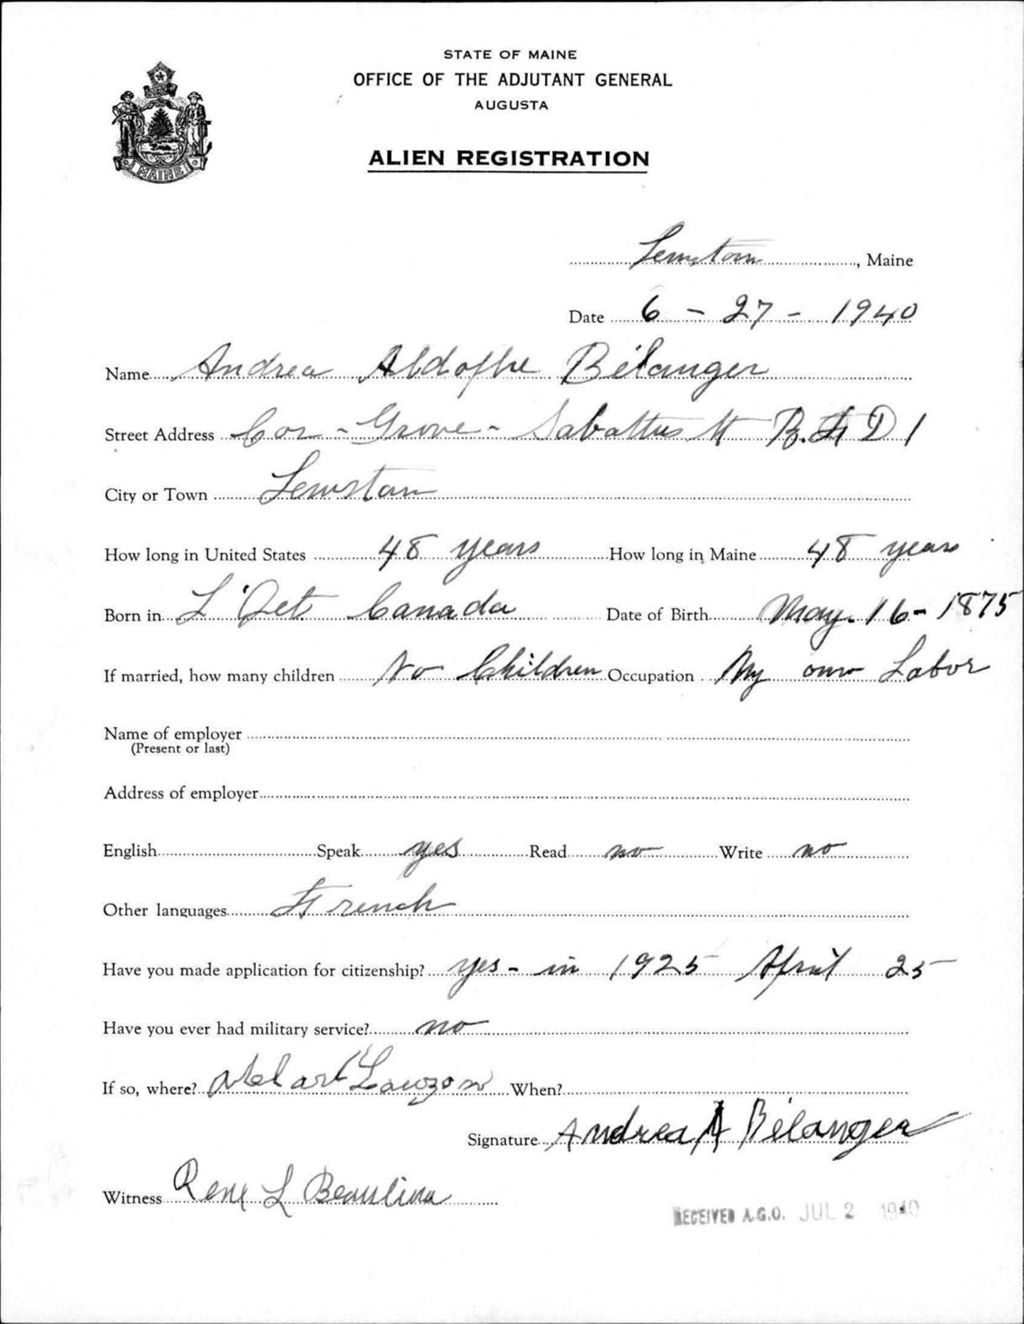 STATE OF MAINE
OFFICE OF THE ADJUTANT GENERAL
AUGUSTA
ALIEN REGISTRATION
MAINE
Lewiston, Maine
Date 6 - 27 - 1940
Name Andrea Aldolphe Bélanger
Street Address Cor - Grove - Sabattus St R.F.D 1
City or Town Lewiston
How long in United States 48 years How long in Maine 48 years
Born in L'Islet Canada Date of Birth May. 16 - 1875
If married, how many children No Children Occupation My own Labor
Name of employer
(Present or last)
Address of employer
English Speak yes Read no Write no
Other languages French
Have you made application for citizenship? yes - in 1925 April 25
Have you ever had military service? no
If so, where? When?
Signature Andrea A Bélanger
Witness Rene L
RECEIVED A.G.O. JUL 2 1940